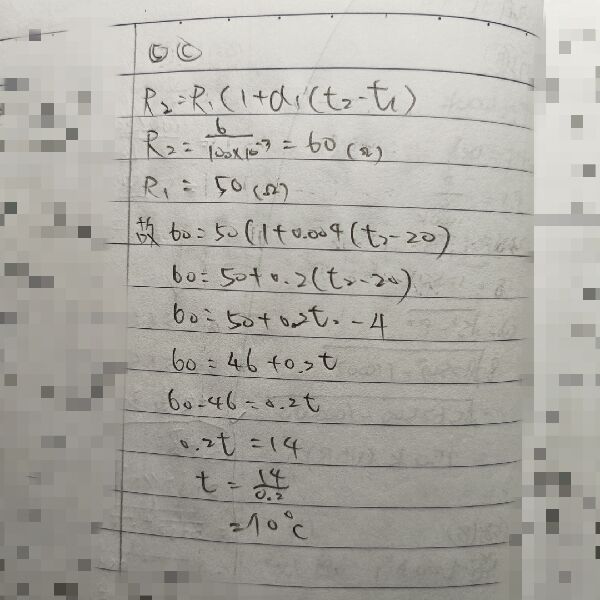 ⑤ C
R₂=R₁(1+α₁(t₂-t₁)
R₂= 6/100×10⁻³ = 60(Ω)
R₁ = 50(Ω)
故 60=50(1+0.004(t₂-20)
60=50+0.2(t₂-20)
60=50+0.2t₂-4
60=46+0.2t
60-46=0.2t
0.2t=14
t=14/0.2
=70℃